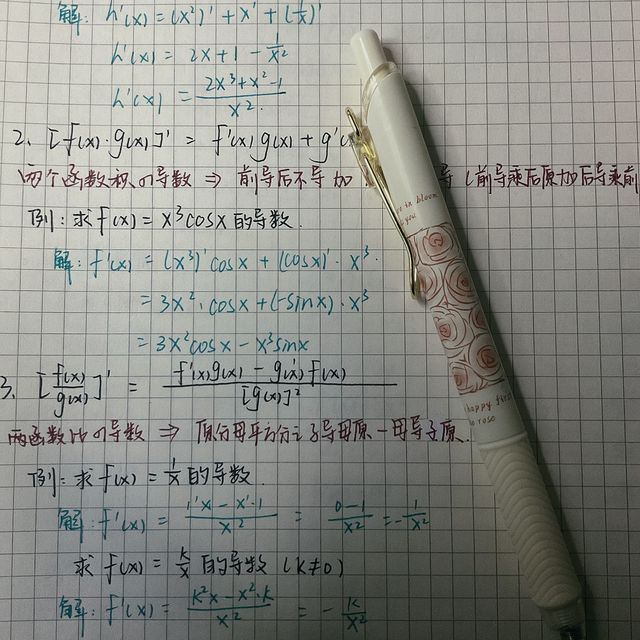 解: h'(x) = (x²)' + x' + (1/x)'
h'(x) = 2x + 1 - 1/x²
h'(x) = (2x³+x²-1)/x²
2. [f(x)·g(x)]' = f'(x)g(x) + g'(x
两个函数积的导数 ⇒ 前导后不导加 导 (前导乘后原加后导乘前
例: 求 f(x) = x³cosx 的导数.
解: f'(x) = (x³)'cosx + (cosx)'·x³.
= 3x²·cosx + (-sinx)·x³
= 3x²cosx - x³sinx
3. [f(x)/g(x)]' = (f'(x)g(x) - g'(x)f(x))/[g(x)]²
两函数比的导数 ⇒ 原分母平方分之子导母原-母导子原.
例: 求 f(x) = 1/x 的导数
解: f'(x) = (1'x - x'·1)/x² = (0-1)/x² = -1/x²
求 f(x) = k/x 的导数 (k≠0)
解: f'(x) = (k'x - x'·k)/x² = -k/x²
in bloom
you
happy
rose